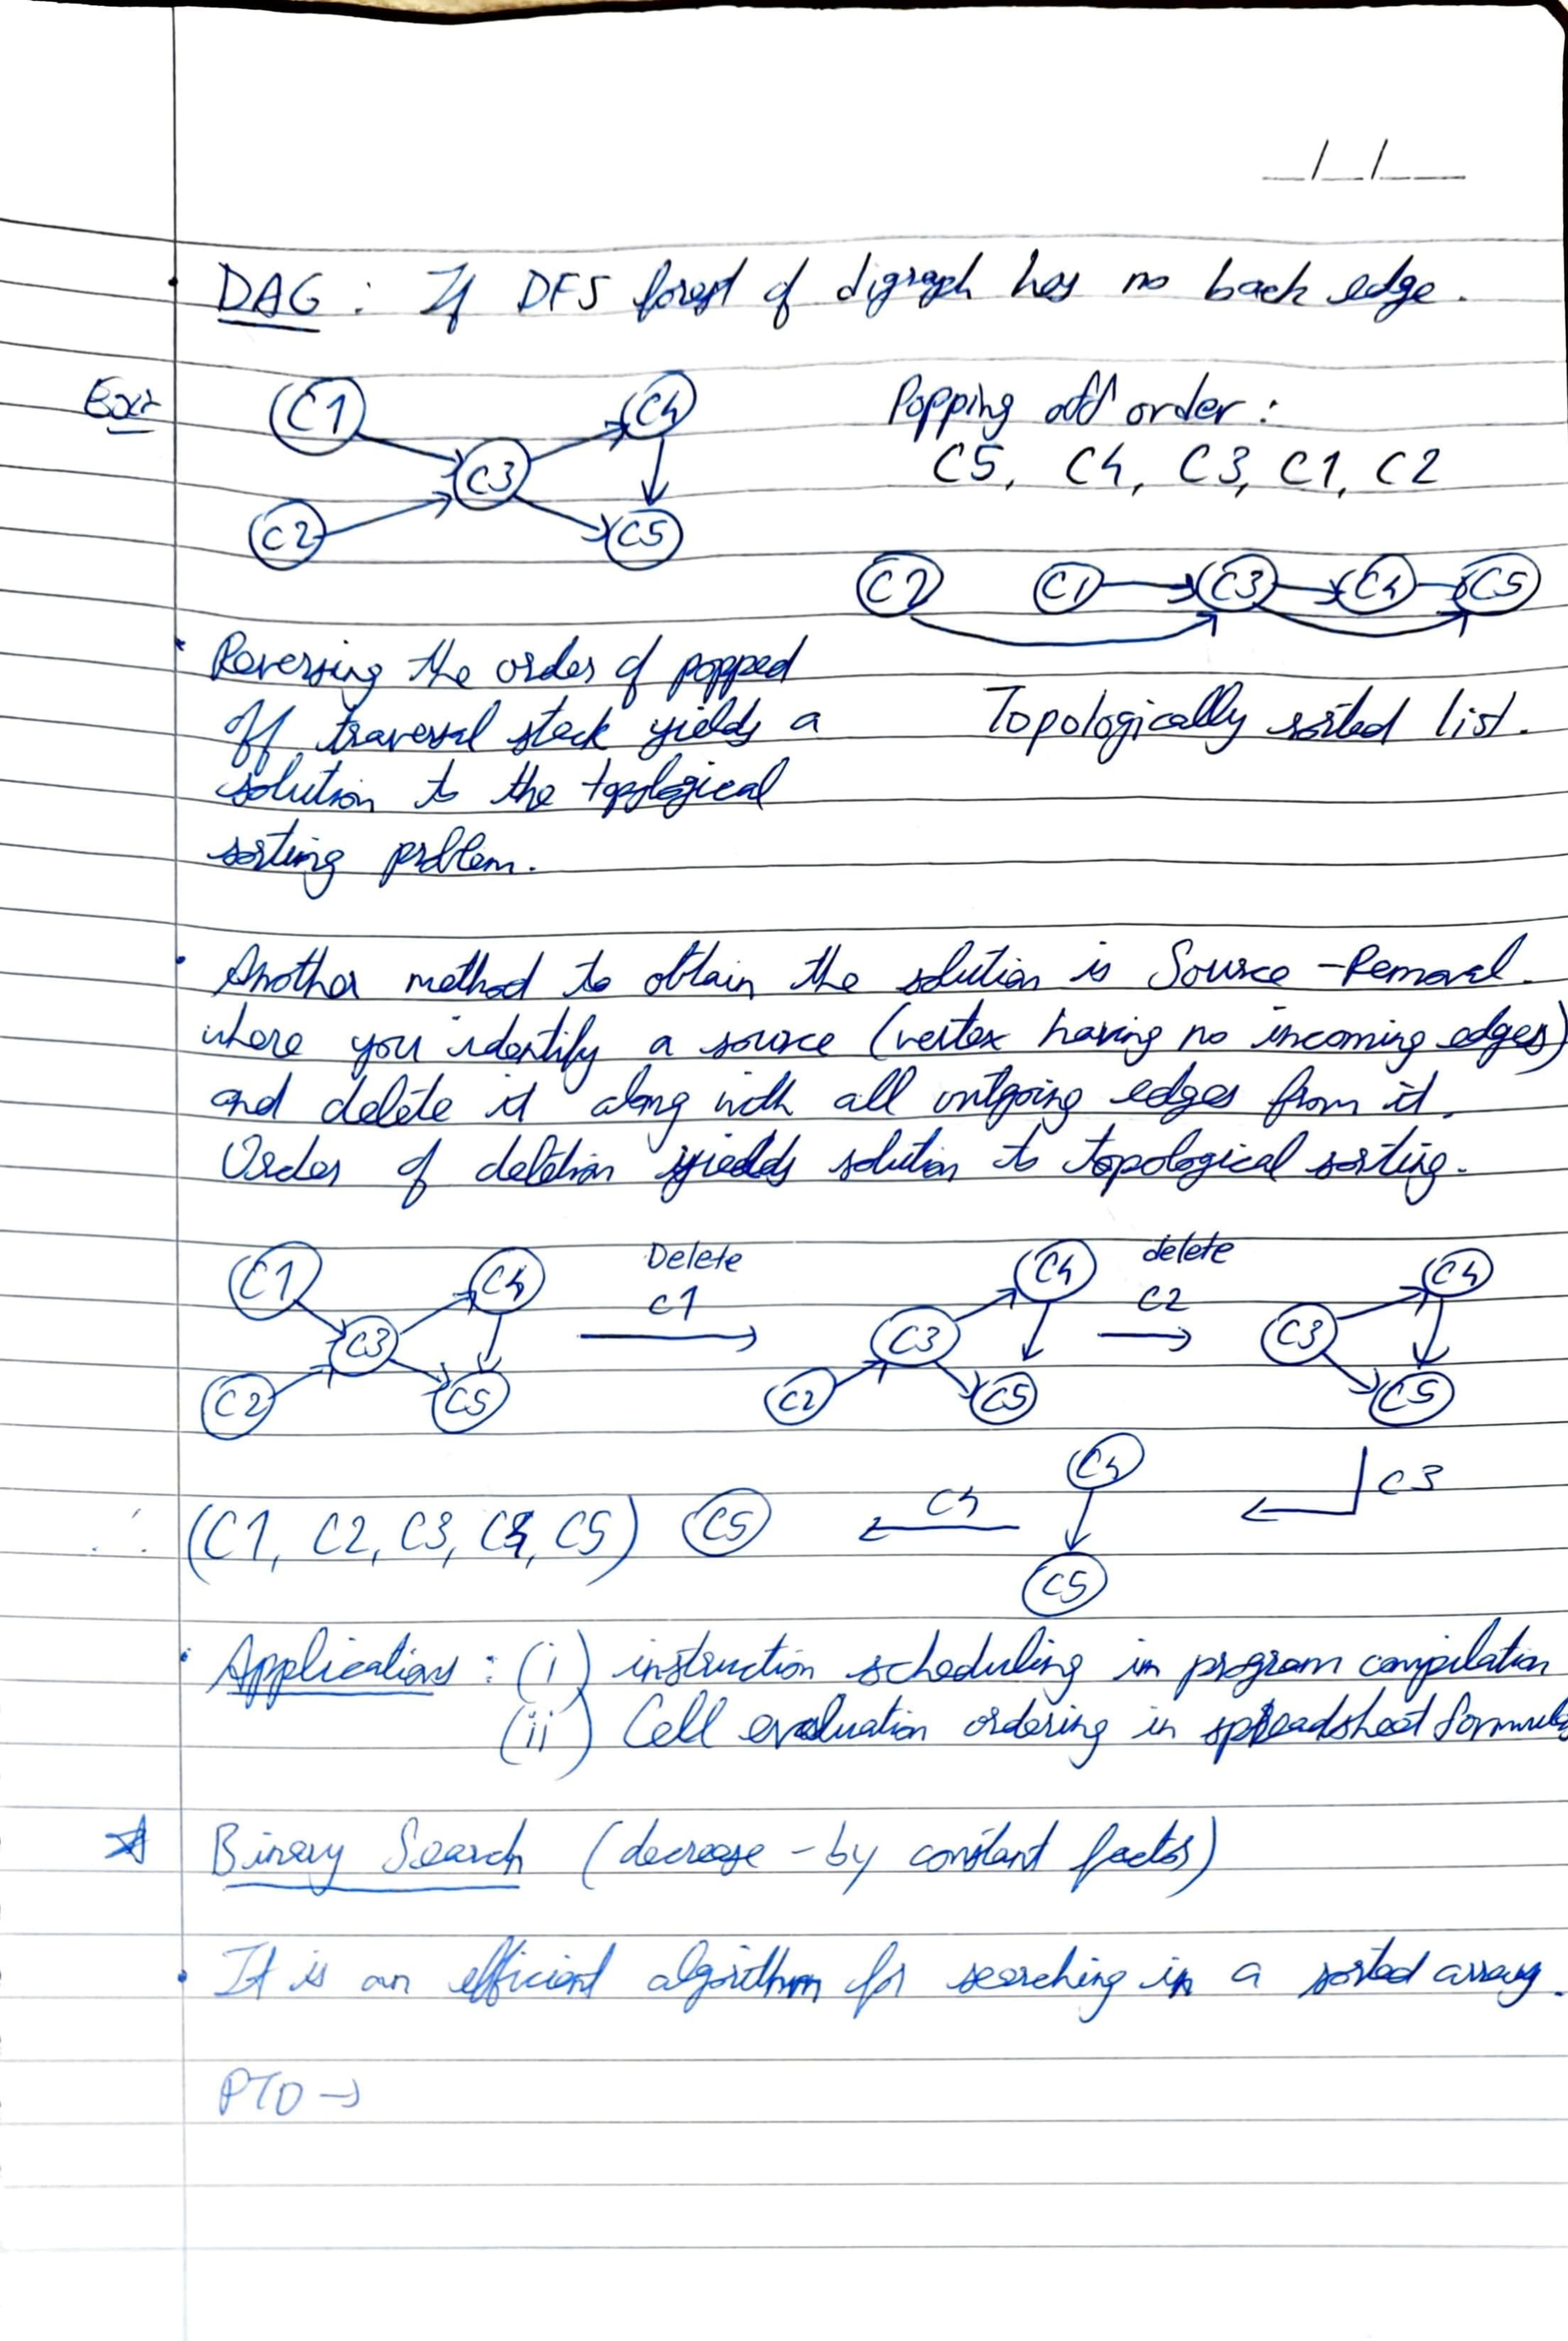 _/_/__
DAG : If DFS forest of digraph has no back edge.
Ex:
C1 C4
C3
C2 C5
Popping off order :
C5, C4, C3, C1, C2
C2 C1 C3 C4 C5
Topologically sorted list.
Reversing the order of popped
off traversal stack yields a
solution to the topological
sorting problem.
Another method to obtain the solution is Source-Removal.
where you identify a source (vertex having no incoming edges)
and delete it along with all outgoing edges from it.
Order of deletion yields solution to topological sorting.
C1 C4 Delete C4 delete C4
C3 C1 C3 C2 C3
C2 C5 C2 C5 C5
C4 C3
∴ (C1, C2, C3, C4, C5) C5 C4
C5
Applications : (i) instruction scheduling in program compilation
(ii) Cell evaluation ordering in spreadsheet
Binary Search (decrease-by constant factor)
It is an efficient algorithm for searching in a sorted array.
PTO →